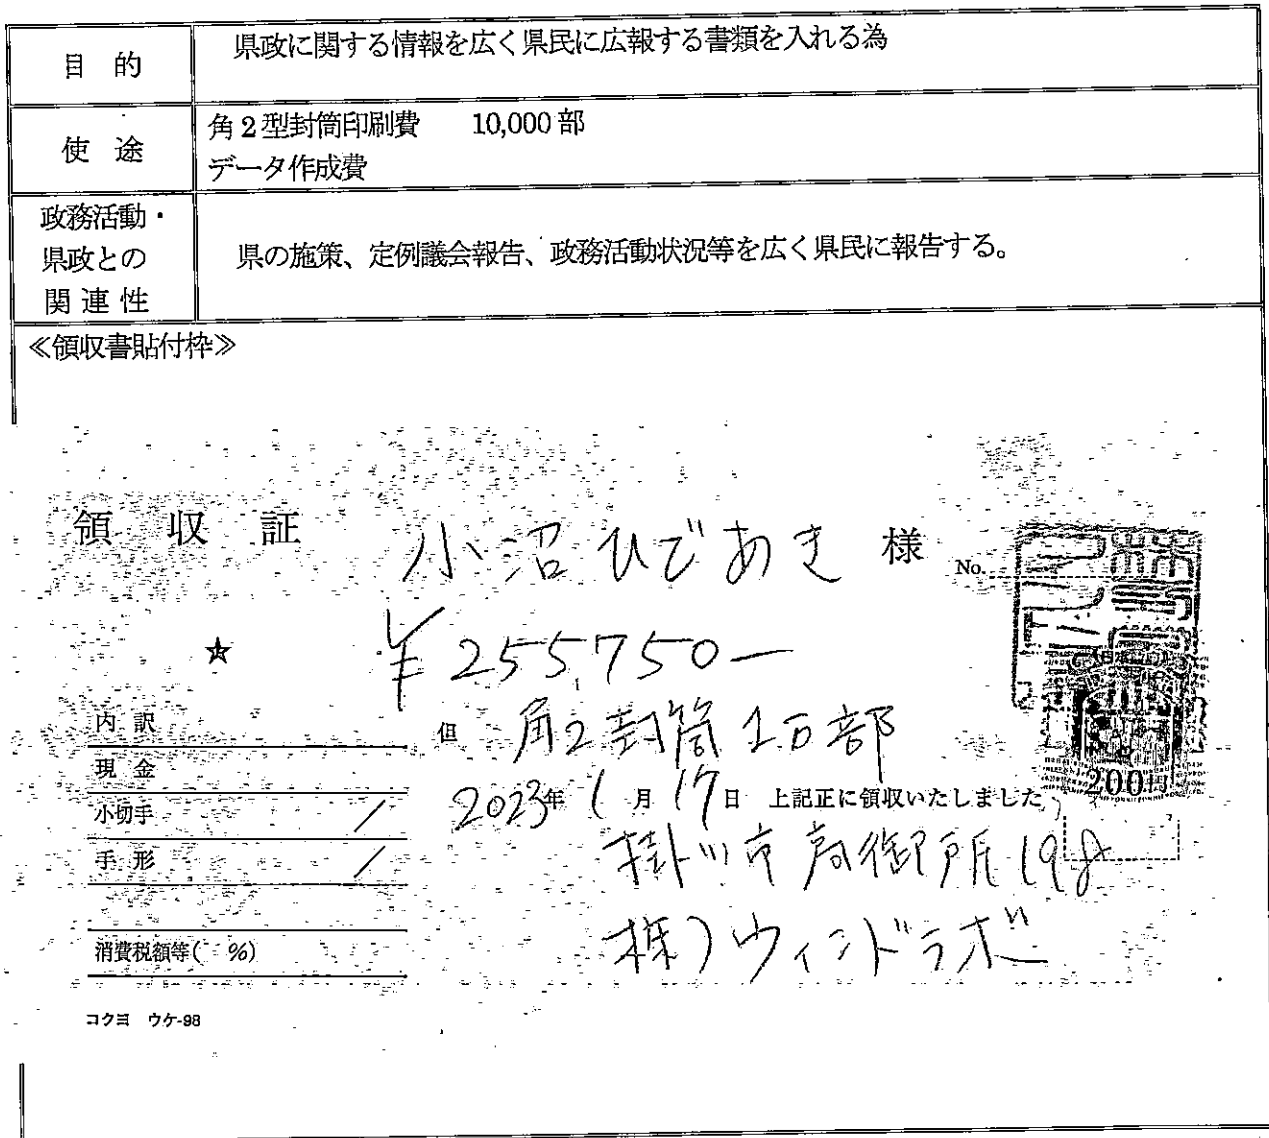 目 的
県政に関する情報を広く県民に広報する書類を入れる為
使 途
角2型封筒印刷費 10,000部
データ作成費
政務活動・
県政との
関連性
県の施策、定例議会報告、政務活動状況等を広く県民に報告する。
≪領収書貼付枠≫
領 収 証 小沼ひであき 様 No.
★ ¥255750-
内 訳
但 角2封筒 1万部
現 金
2023年 1月 17日 上記正に領収いたしました
200円
小切手 /
掛川市高御所198
手 形 /
株)ウィンドラボ
消費税額等( %)
コクヨ ウケ-98